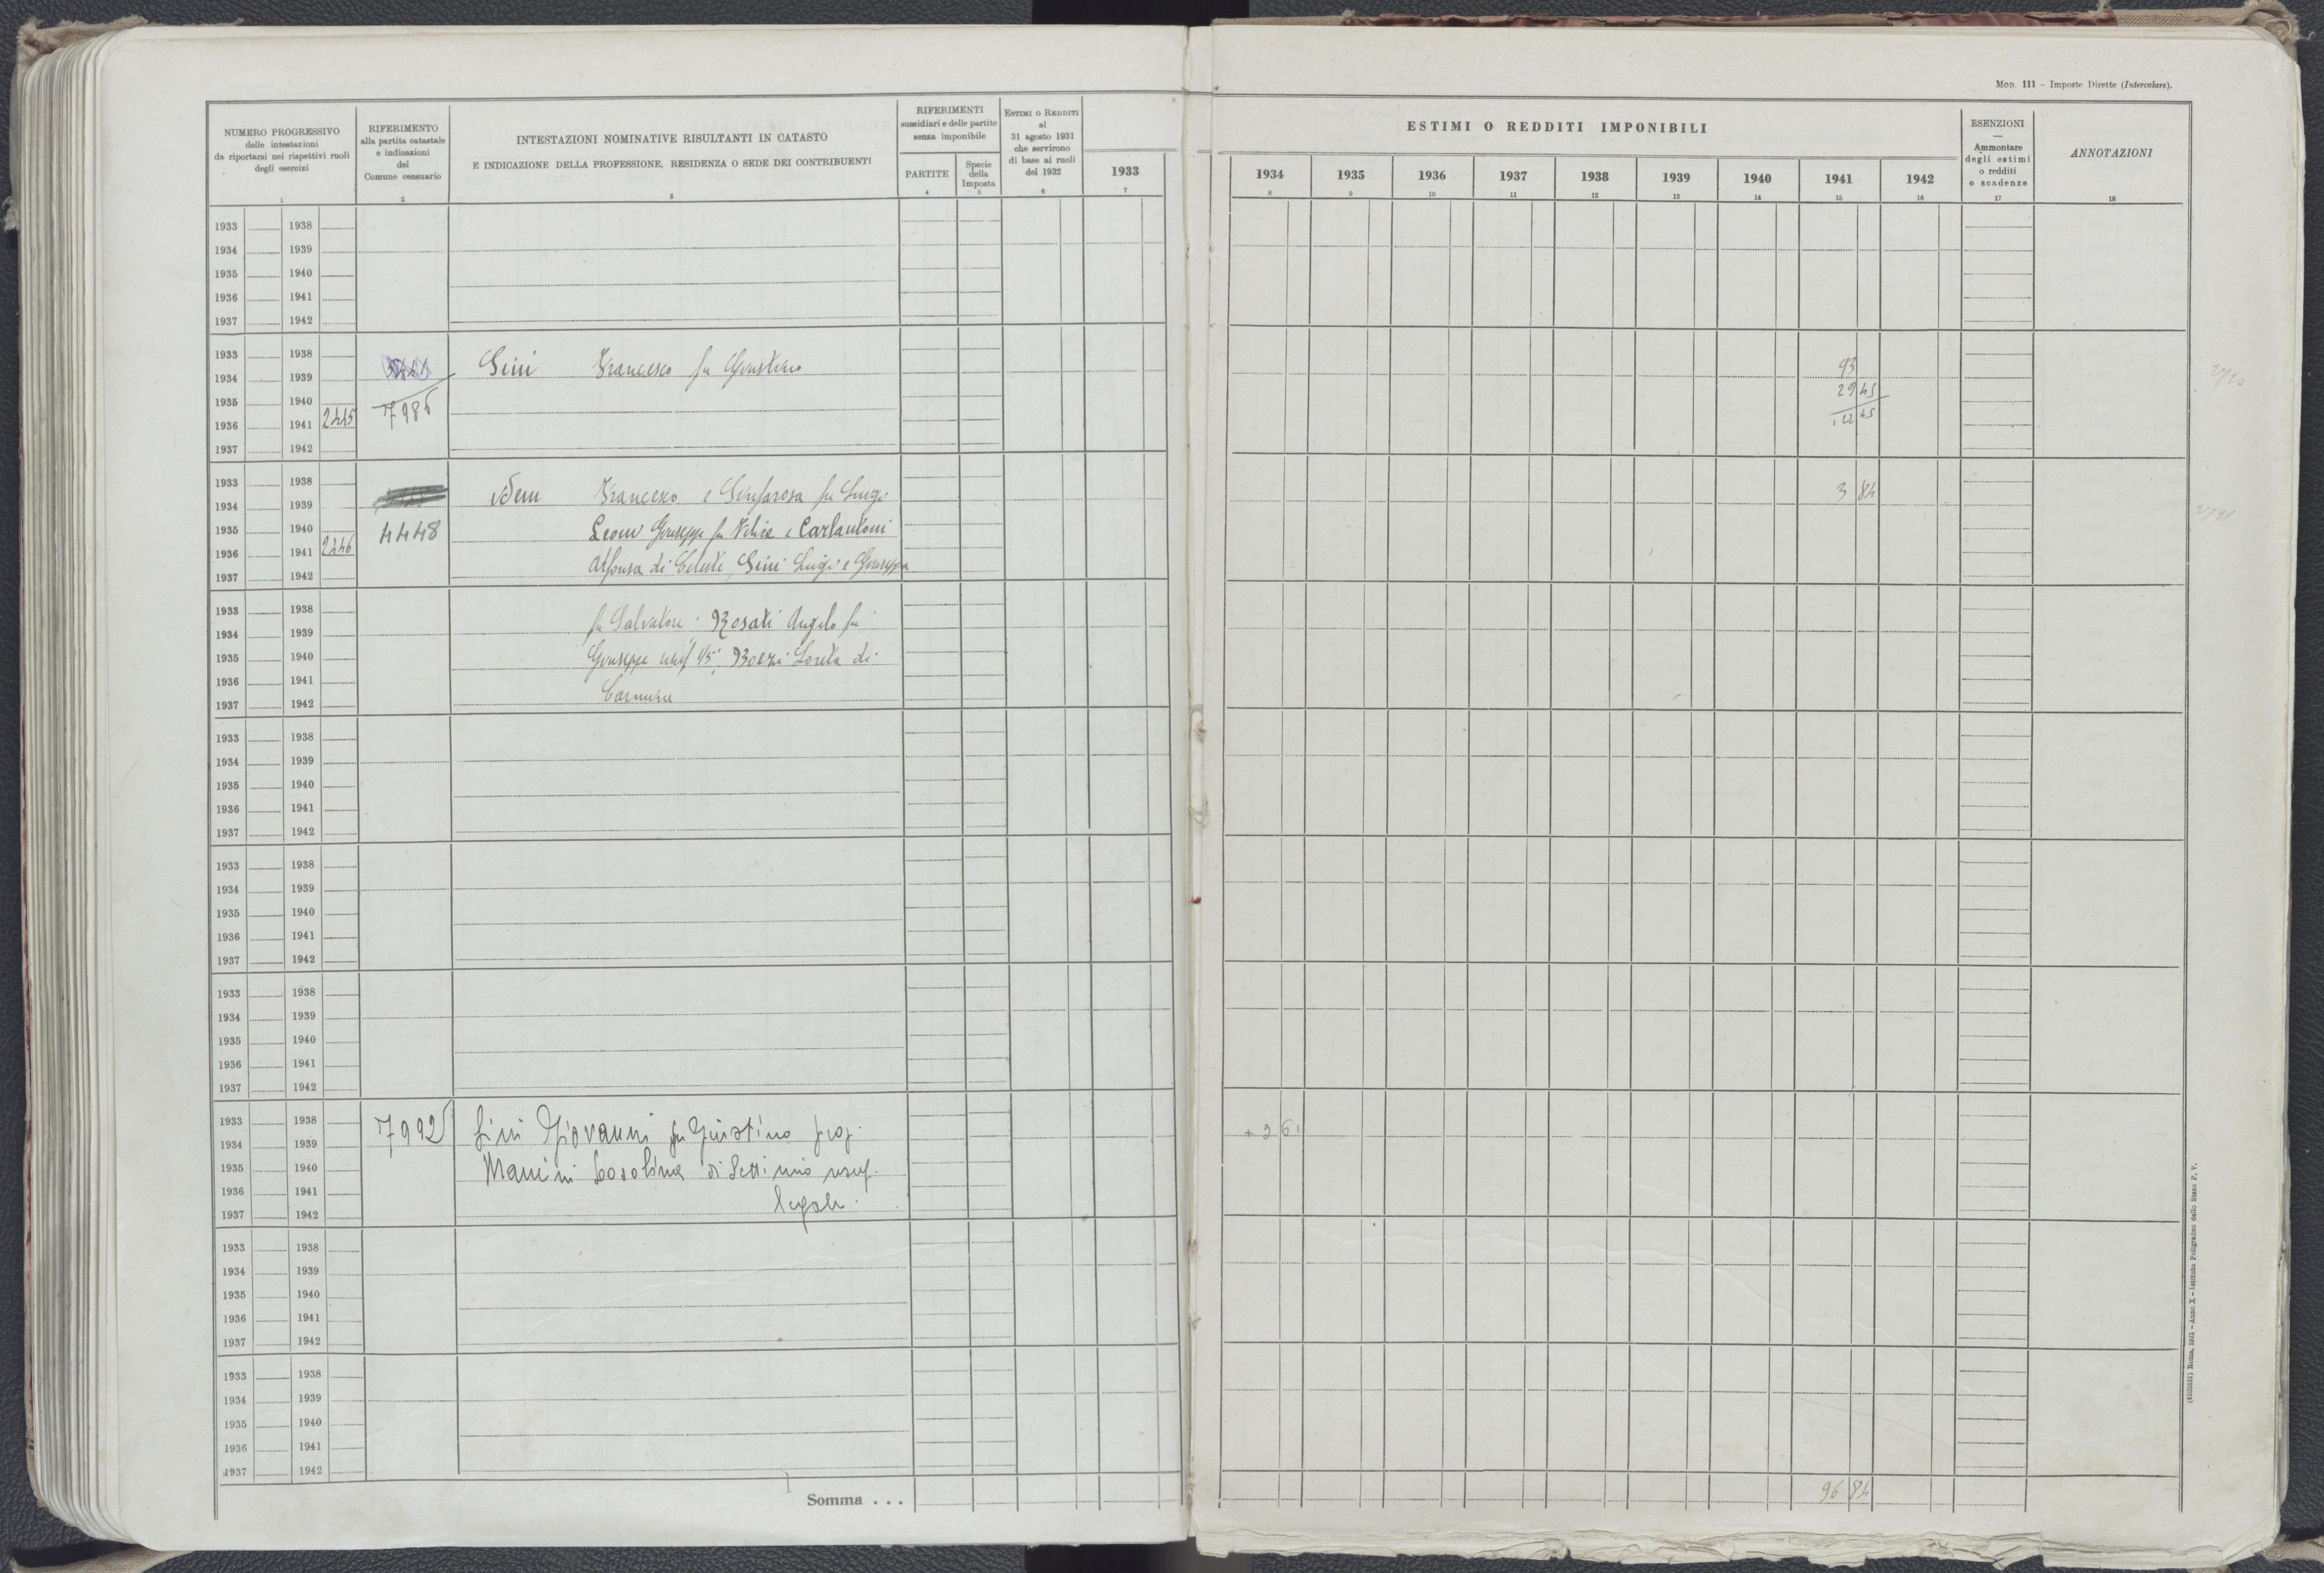 MOD. 111 – Imposte Dirette (Intercalare).
NUMERO PROGRESSIVO
delle intestazioni
da riportarsi nei rispettivi ruoli
degli esercizi
1
RIFERIMENTO
alla partita catastale
e indicazioni
del
Comune censuario
2
INTESTAZIONI NOMINATIVE RISULTANTI IN CATASTO
E INDICAZIONE DELLA PROFESSIONE, RESIDENZA O SEDE DEI CONTRIBUENTI
3
RIFERIMENTI
sussidiari e delle partite
senza imponibile
PARTITE
4
Specie
della
Imposta
5
ESTIMI O REDDITI
al
31 agosto 1931
che servirono
di base ai ruoli
del 1932
6
1933
7
ESTIMI O REDDITI IMPONIBILI
1934 1935 1936 1937 1938 1939 1940 1941 1942
8 9 10 11 12 13 14 15 16
ESENZIONI
—
Ammontare
degli estimi
o redditi
e scadenze
17
ANNOTAZIONI
18
1933 1938
1934 1939
1935 1940
1936 1941
1937 1942
1933 1938
1934 1939 Gini Francesco fu Giustino 93
1935 1940 7986 29 45
1936 1941 2445 122 45
1937 1942
1933 1938
1934 1939 idem Francesco e Sinfarosa fu Luigi 3 84
1935 1940 4448 Leoni Giuseppe fu Felice e Carlantoni
1936 1941 2446
1937 1942 Alfonsa di Celeste, Gini Luigi e Giuseppa
1933 1938
1934 1939 fu Salvatore Rosati Angelo fu
1935 1940 Giuseppe usuf 1/5 Bozzi Loreta di
1936 1941
1937 1942 Carmine
1933 1938
1934 1939
1935 1940
1936 1941
1937 1942
1933 1938
1934 1939
1935 1940
1936 1941
1937 1942
1933 1938
1934 1939
1935 1940
1936 1941
1937 1942
1933 1938 7992 Gini Giovanni fu Giustino prop.
1934 1939 + 3 61
1935 1940 Mancini Cosolina di Settimio usuf.
1936 1941
1937 1942 legale.
1933 1938
1934 1939
1935 1940
1936 1941
1937 1942
1933 1938
1934 1939
1935 1940
1936 1941
1937 1942
Somma . . . 96 84
(4103521) Roma, 1931 – Anno X – Istituto Poligrafico dello Stato P. V.